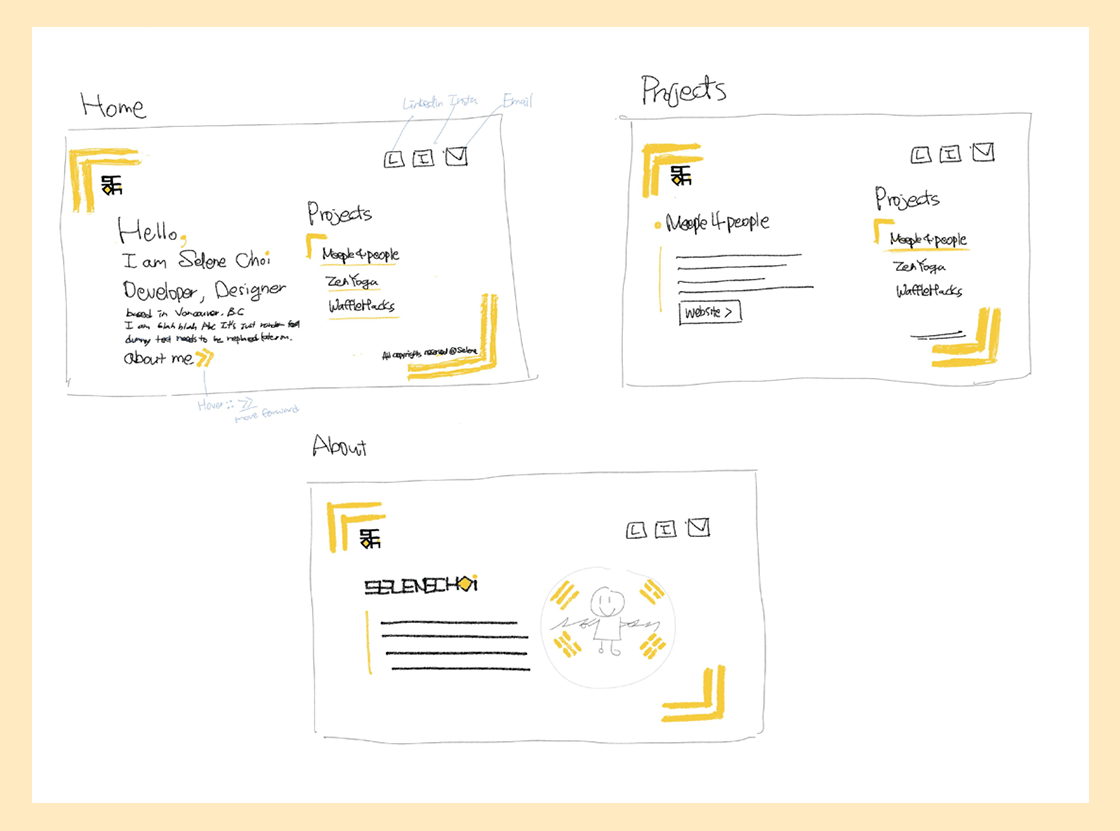 Home
Linkedin Insta Email
L I
Hello,
I am Selene Choi
Developer, Designer
based in Vancouver, B.C
I am blah blah Abc It's just random text
dummy text needs to be replaced later on.
about me
Hover::
move forward
Projects
Meeple4people
ZenYoga
WaffleHacks
All copyrights reserved @Selene
Projects
L I
Meeple 4 people
Website >
Projects
Meeple4people
ZenYoga
WaffleHacks
About
L I
SELENECHOi